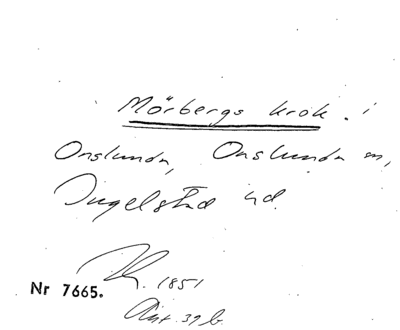 Mörbergs krok i
Onslunda, Onslunda sn,
Ingelstad hd.
1851
Nr 7665.
Ant. 39 b.